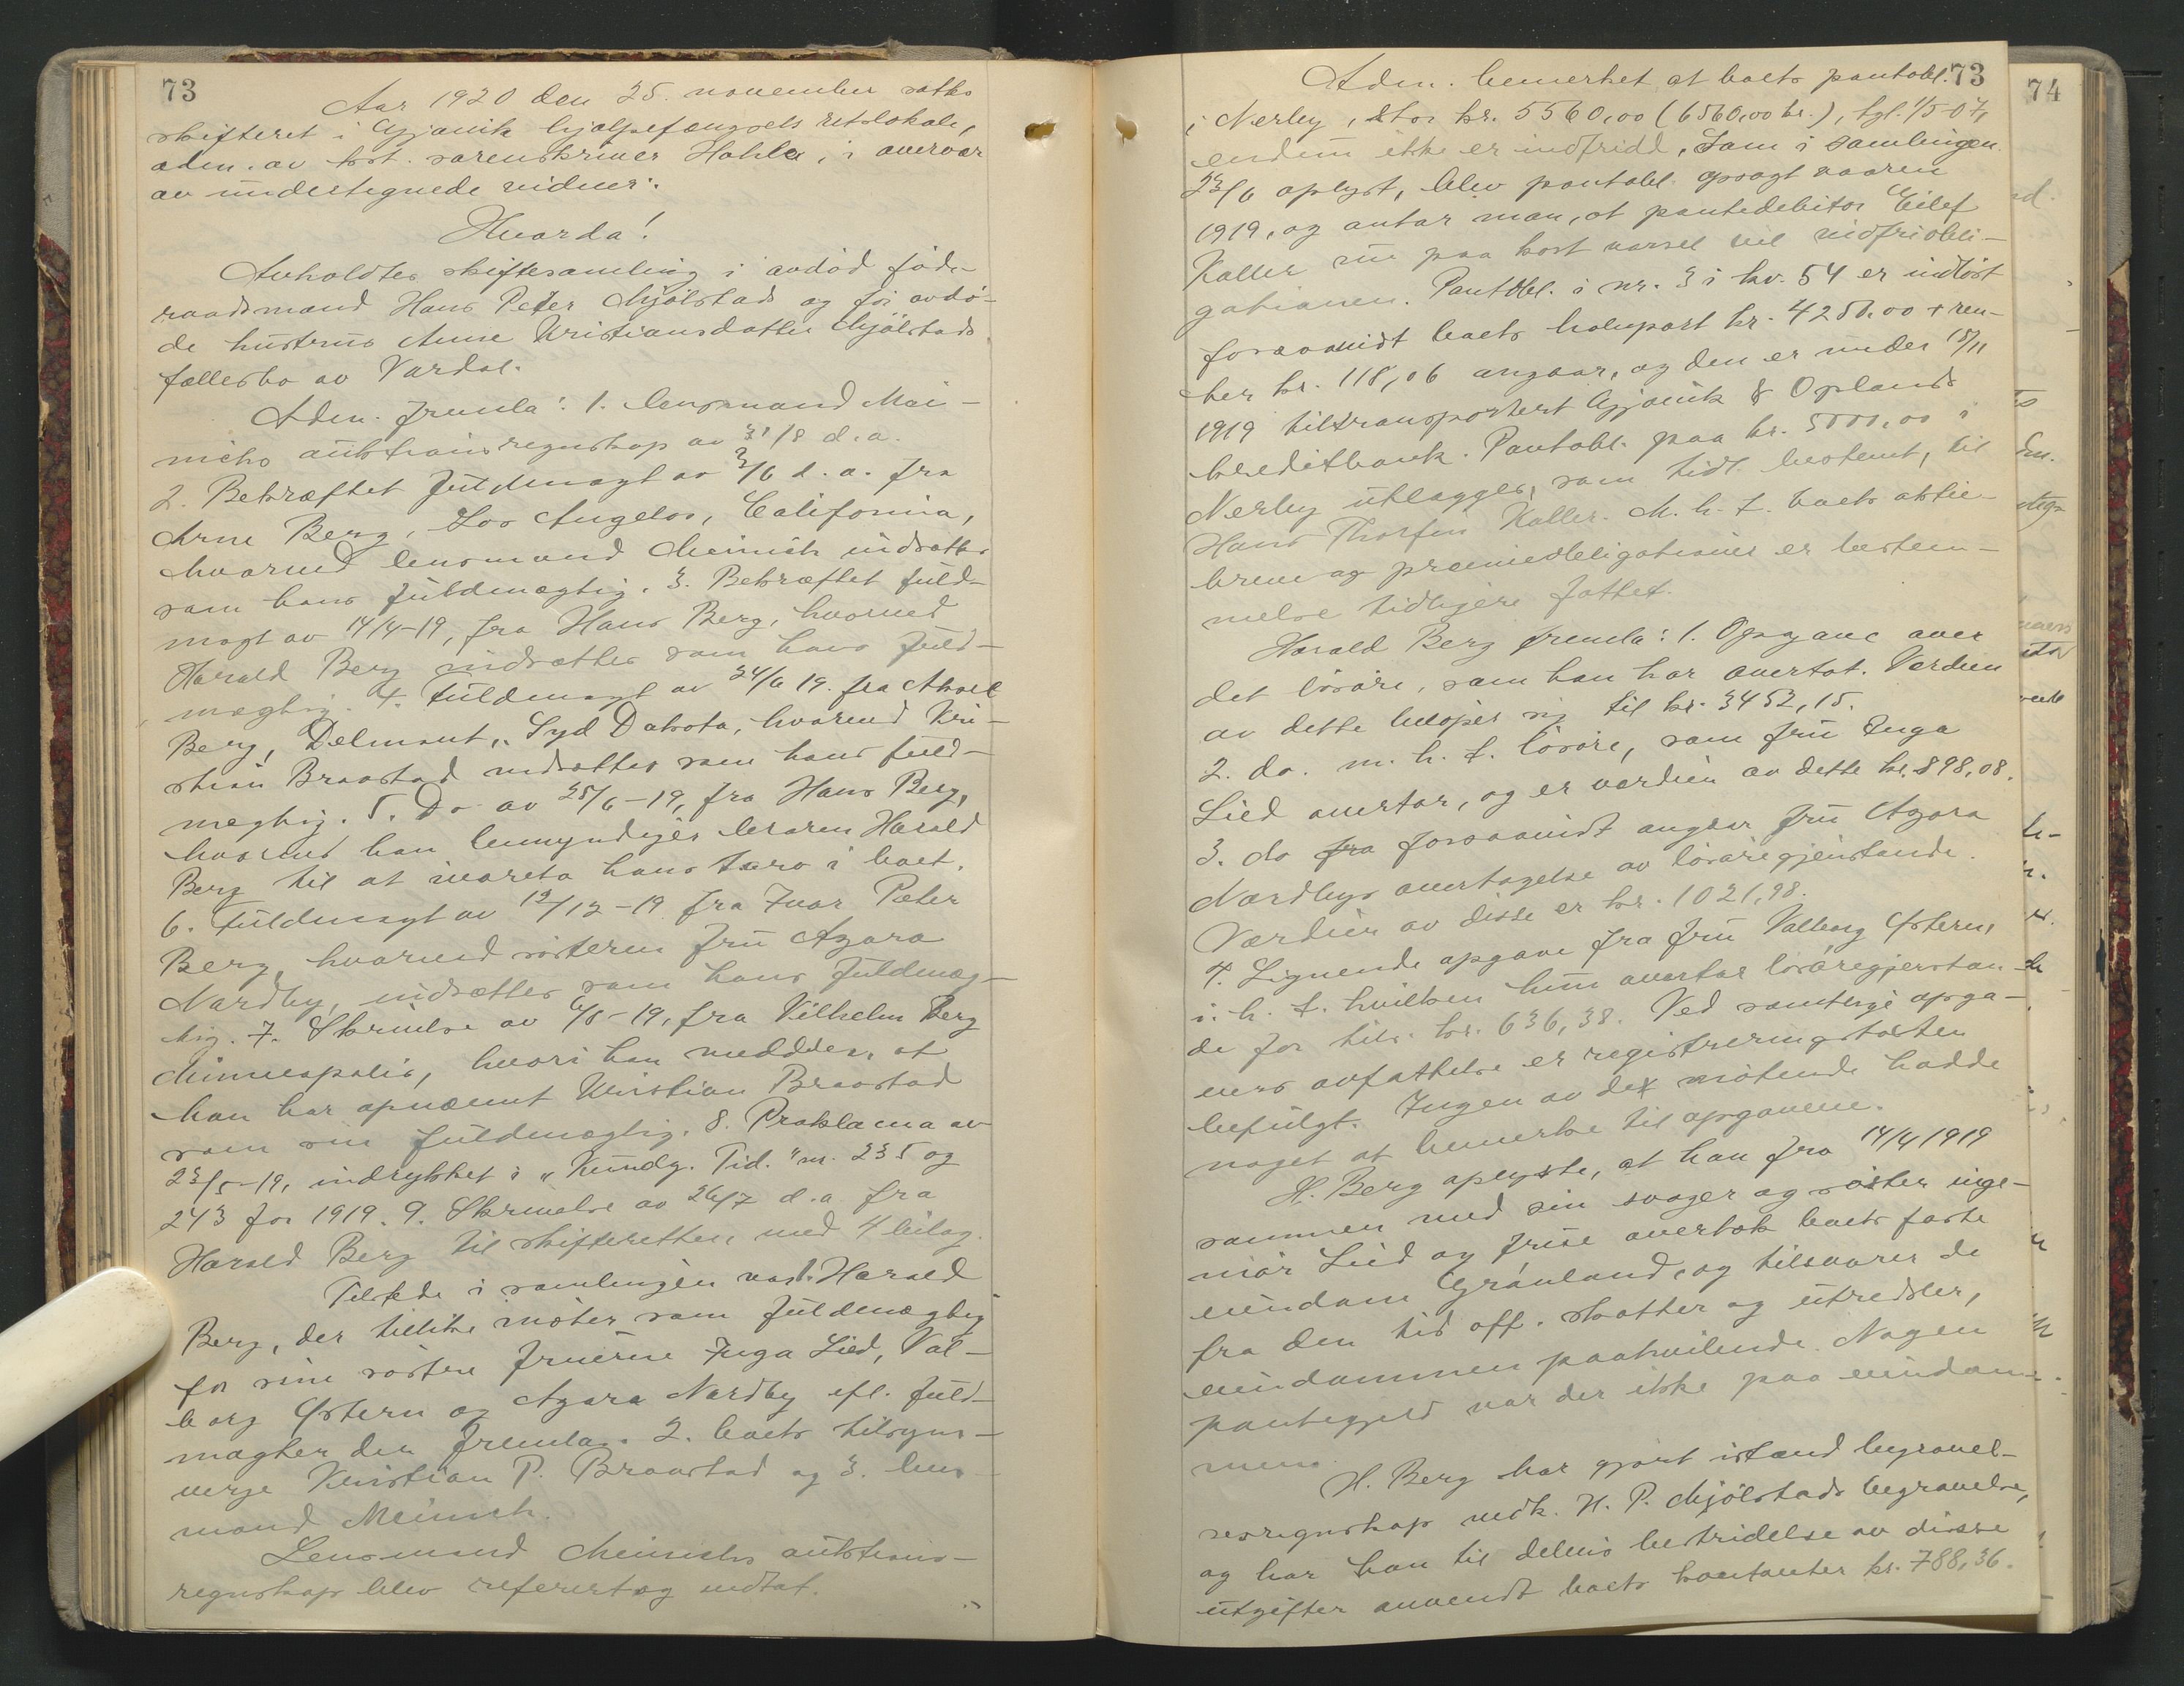 73
Aar 1920 den 25. november sattes
skifteret i Gjøvik hjælpefængsels retslokale,
adm. av kst. sorenskriver Hohle, i overvær
av undertegnede vidner:
Hvorda!
Avholdtes skiftesamling i avdød føde-
raadsmand Hans Peter Mjølstads og før avdø-
de hustrus Anne Kristiansdatter Mjølstads
fællesbo av Vardal.
Adm. fremla: 1. lensmand Mei-
nichs auktionsregnskap av 31/8 d.a.
2. Bekræftet fuldmagt av 3/6 d.a. fra
Arne Berg, Los Angelos, California,
hvorved lensmand Meinich indsættes
som hans fuldmægtig. 3. Bekræftet fuld-
magt av 14/4-19, fra Hans Berg, hvorved
Harald Berg indsættes som hans fuld-
mægtig. 4. Fuldmagt av 24/6 19. fra Aksel
Berg, Delmont, Syd Dakota, hvorved Kri-
stian Braastad indsættes som hans fuld-
mægtig. 5. Do av 25/6-19, fra Hans Berg,
hvorved han bemyndiger broren Harald
Berg til at ivareta hans tarv i boet.
6. Fuldmagt av 12/12-19 fra Ivar Peter
Berg, hvorved søsteren fru Agora
Nordby, indsættes som hans fuldmæg-
tig. 7. Skrivelse av 6/8-19, fra Vilhelm Berg
Minneapolis, hvori han meddeler, at
han har opnævnt Kristian Braastad
som sin fuldmægtig. 8. Proklama av
23/5-19, indrykket i "Kundg. Tid." nr. 235 og
243 for 1919. 9. Skrivelse av 26/7 d.a. fra
Harald Berg til skifteretten, med 4 bilag.
Tilstede i samlingen var 1. Harald
Berg, der tillike møter som fuldmægtig
for sine søstre fruerne Inga Lied, Val-
borg Østern og Agora Nordby efl. fuld-
magter der fremla. 2. boets tilsyns-
verge Kristian P. Braastad og 3. lens-
mand Meinich.
Lensmand Meinichs auktions-
regnskap blev referert og vedtat.
73
Adm. bemerket at boets pantobl.
i Nerby, stor kr. 5560,00 (6560,00 kr.), tgl. 1/5-07,
endnu ikke er indfridd. Som i samlingen
23/6 oplyst, blev pantobl. opsagt vaaren
1919, og antar man, at pantedebitor Eilef
Kaller nu paa kort varsel vil indfri obli-
gationen. Pantobl. i nr. 3 i kv. 54 er indløst
forsaavidt boets halvpart kr. 4250,00 + ren-
ter kr. 118,06 angaar, og den er under 15/11
1919 tiltransportert Gjøvik & Oplands
kreditbank. Pantobl. paa kr. 5000,00 i
Nerby utlægges, som tidl. bestemt, til
Hans Thorfin Kaller. M. h. t. boets aktie-
breve og præmieobligationer er bestem-
melse tidligere fattet.
Harald Berg fremla: 1. Opgave over
det løsøre, som han har overtat. Verdien
av dette beløper sig til kr. 3452,15.
2. do. m. h. t. løsøre, som fru Inga
Lied overtar, og er værdien av dette kr. 898,08.
3. do fra forsaavidt angaar fru Agora
Nordbys overtagelse av løsøregjenstande.
Værdien av disse er kr. 1021,98.
4. Lignende opgave fra fru Valborg Østern,
i. h. t. hvilken hun overtar løsøregjenstan-
de for tils. kr. 636,38. Ved samtlige opga-
vers avfattelse er registreringstaksten
befulgt. Ingen av de møtende hadde
noget at bemerke til opgavene.
H. Berg oplyste, at han fra 14/4 1919
sammen med sin svoger og søster inge-
niør Lied og frue overtok boets faste
eiendom Grønland, og tilsvarer de
fra den tid off. skatter og utredsler,
eiendommen paahvilende. Nogen
pantegjeld var der ikke paa eiendom-
mene.
H. Berg har gjort istand begravel-
sesregnskap vedk. H. P. Mjølstads begravelse,
og har han til delvis bestridelse av disse
utgifter anvendt boets kontanter kr. 788,36.
74